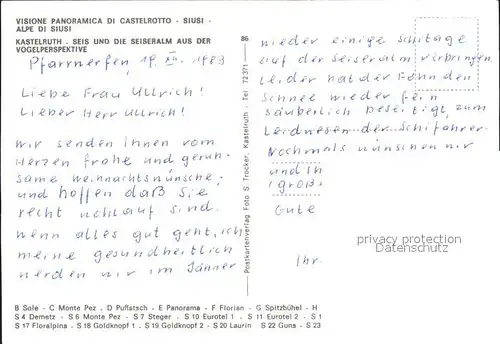 VISIONE PANORAMICA DI CASTELROTTO - SIUSI -
ALPE DI SIUSI
KASTELRUTH - SEIS UND DIE SEISERALM AUS DER
VOGELPERSPEKTIVE
Pfarrwerfen, 19. XII. 1983
Liebe Frau Ullrich!
Lieber Herr Ullrich!
Wir senden Ihnen vom
Herzen frohe und geruh-
same Weihnachtswünsche;
und hoffen daß Sie,
recht wohlauf sind.
Wenn alles gut geht, ich
meine gesundheitlich
werden wir im Jänner
86
Postkartenverlag Foto S. Trocker, Kastelruth - Tel. 72371
wieder einige Schitage
auf der Seiseralm verbringen.
Leider hat der Föhn den
Schnee wieder fein
säuberlich beseitigt, zum
Leidwesen der Schifahrer.
Nochmals wünschen wir
und Ih
(groß
Gute
Ihr.
privacy protection
Datenschutz
B Sole - C Monte Pez - D Puflatsch - E Panorama - F Florian - G Spitzbühel - H
S 4 Demetz - S 6 Monte Pez - S 7 Steger - S 10 Eurotel 1 - S 11 Eurotel 2 - S 1
S 17 Floralpina - S 18 Goldknopf 1 - S 19 Goldknopf 2 - S 20 Laurin S 22 Guns - S 23